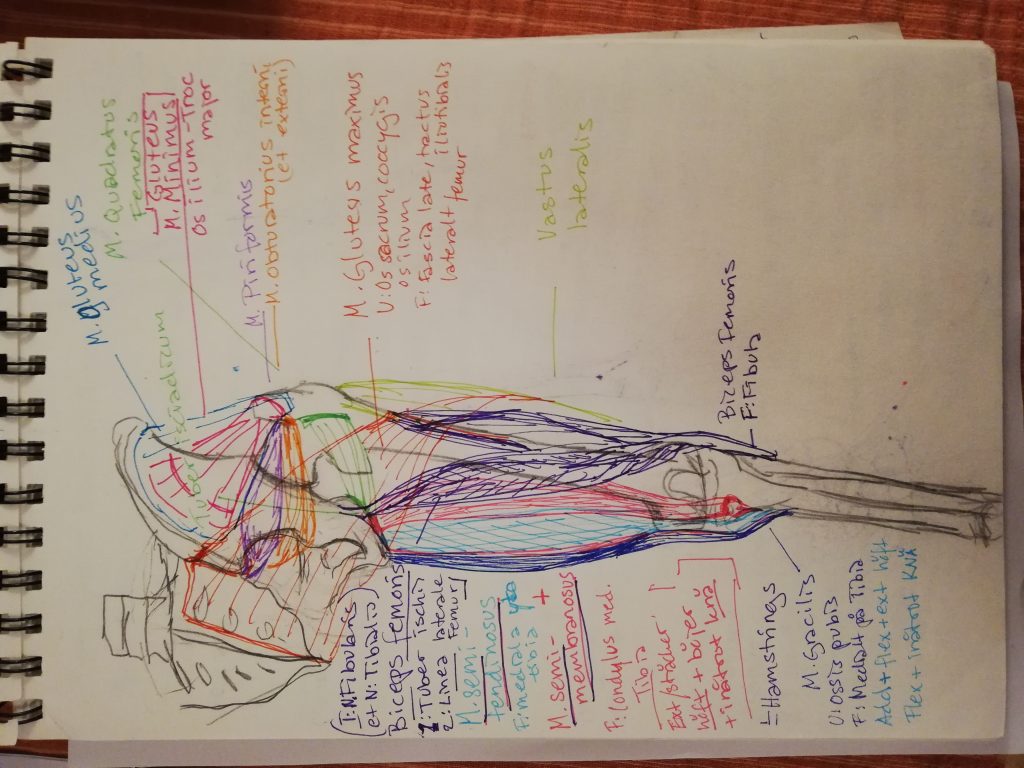 M. gluteus
medius
M. Quadratus
Femoris
Gluteus
M. Minimus
Os ilium-Troc
major
M. Piriformis
M. obturatorius interni
(et externi)
M. Gluteus maximus
U: Os sacrum, coccygis
os ilium
F: fascia late, tractus
iliotibialis
lateralt femur
Vastus
lateralis
Biceps femoris
F: Fibula
(I: N. Fibularis
et N: Tibialis)
Biceps femoris
1: Tuber ischii
2: Linea laterale
Femur
M. semi-
tendinosus
F: mediala
M. semi- +
membranosus
F: Condylus med.
Tibia
Ext/sträcker
höft + böjer
+ inåtrot knä
= Hamstrings
M. Gracilis
U: ossis pubis
F: Medialt på Tibia
Add + flex + ext höft
Flex + inåtrot KNÄ